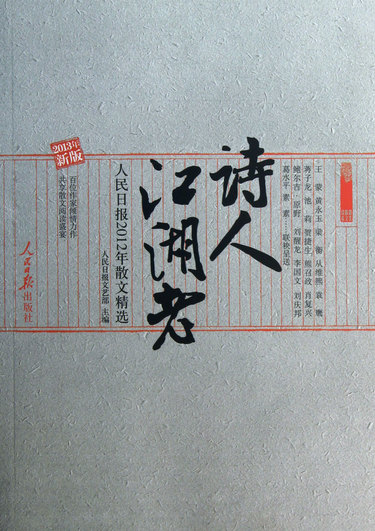 王 蒙 黄永玉 梁 衡 从维熙 袁 鹰
蒋子龙 池 莉 贺捷生 熊召政 肖复兴
鲍尔吉·原野 刘醒龙 李国文 刘庆邦
葛水平 素 素 联袂呈送
诗人
江湖老
人民日报2012年散文精选
人民日报文艺部 主编
2013年
新版
百位作家倾情力作
共享散文阅读盛宴
人民日报出版社